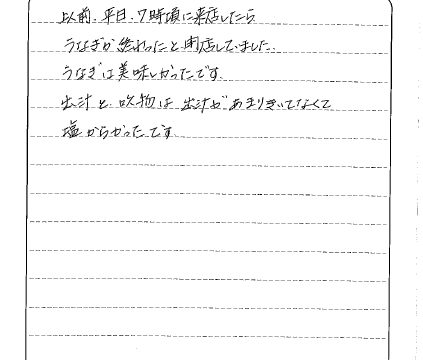 以前、平日、7時頃に来店したら
うなぎが終わったと閉店していました。
うなぎは美味しかったです。
出汁と、吸物は出汁があまりきいてなくて
塩からかったです。